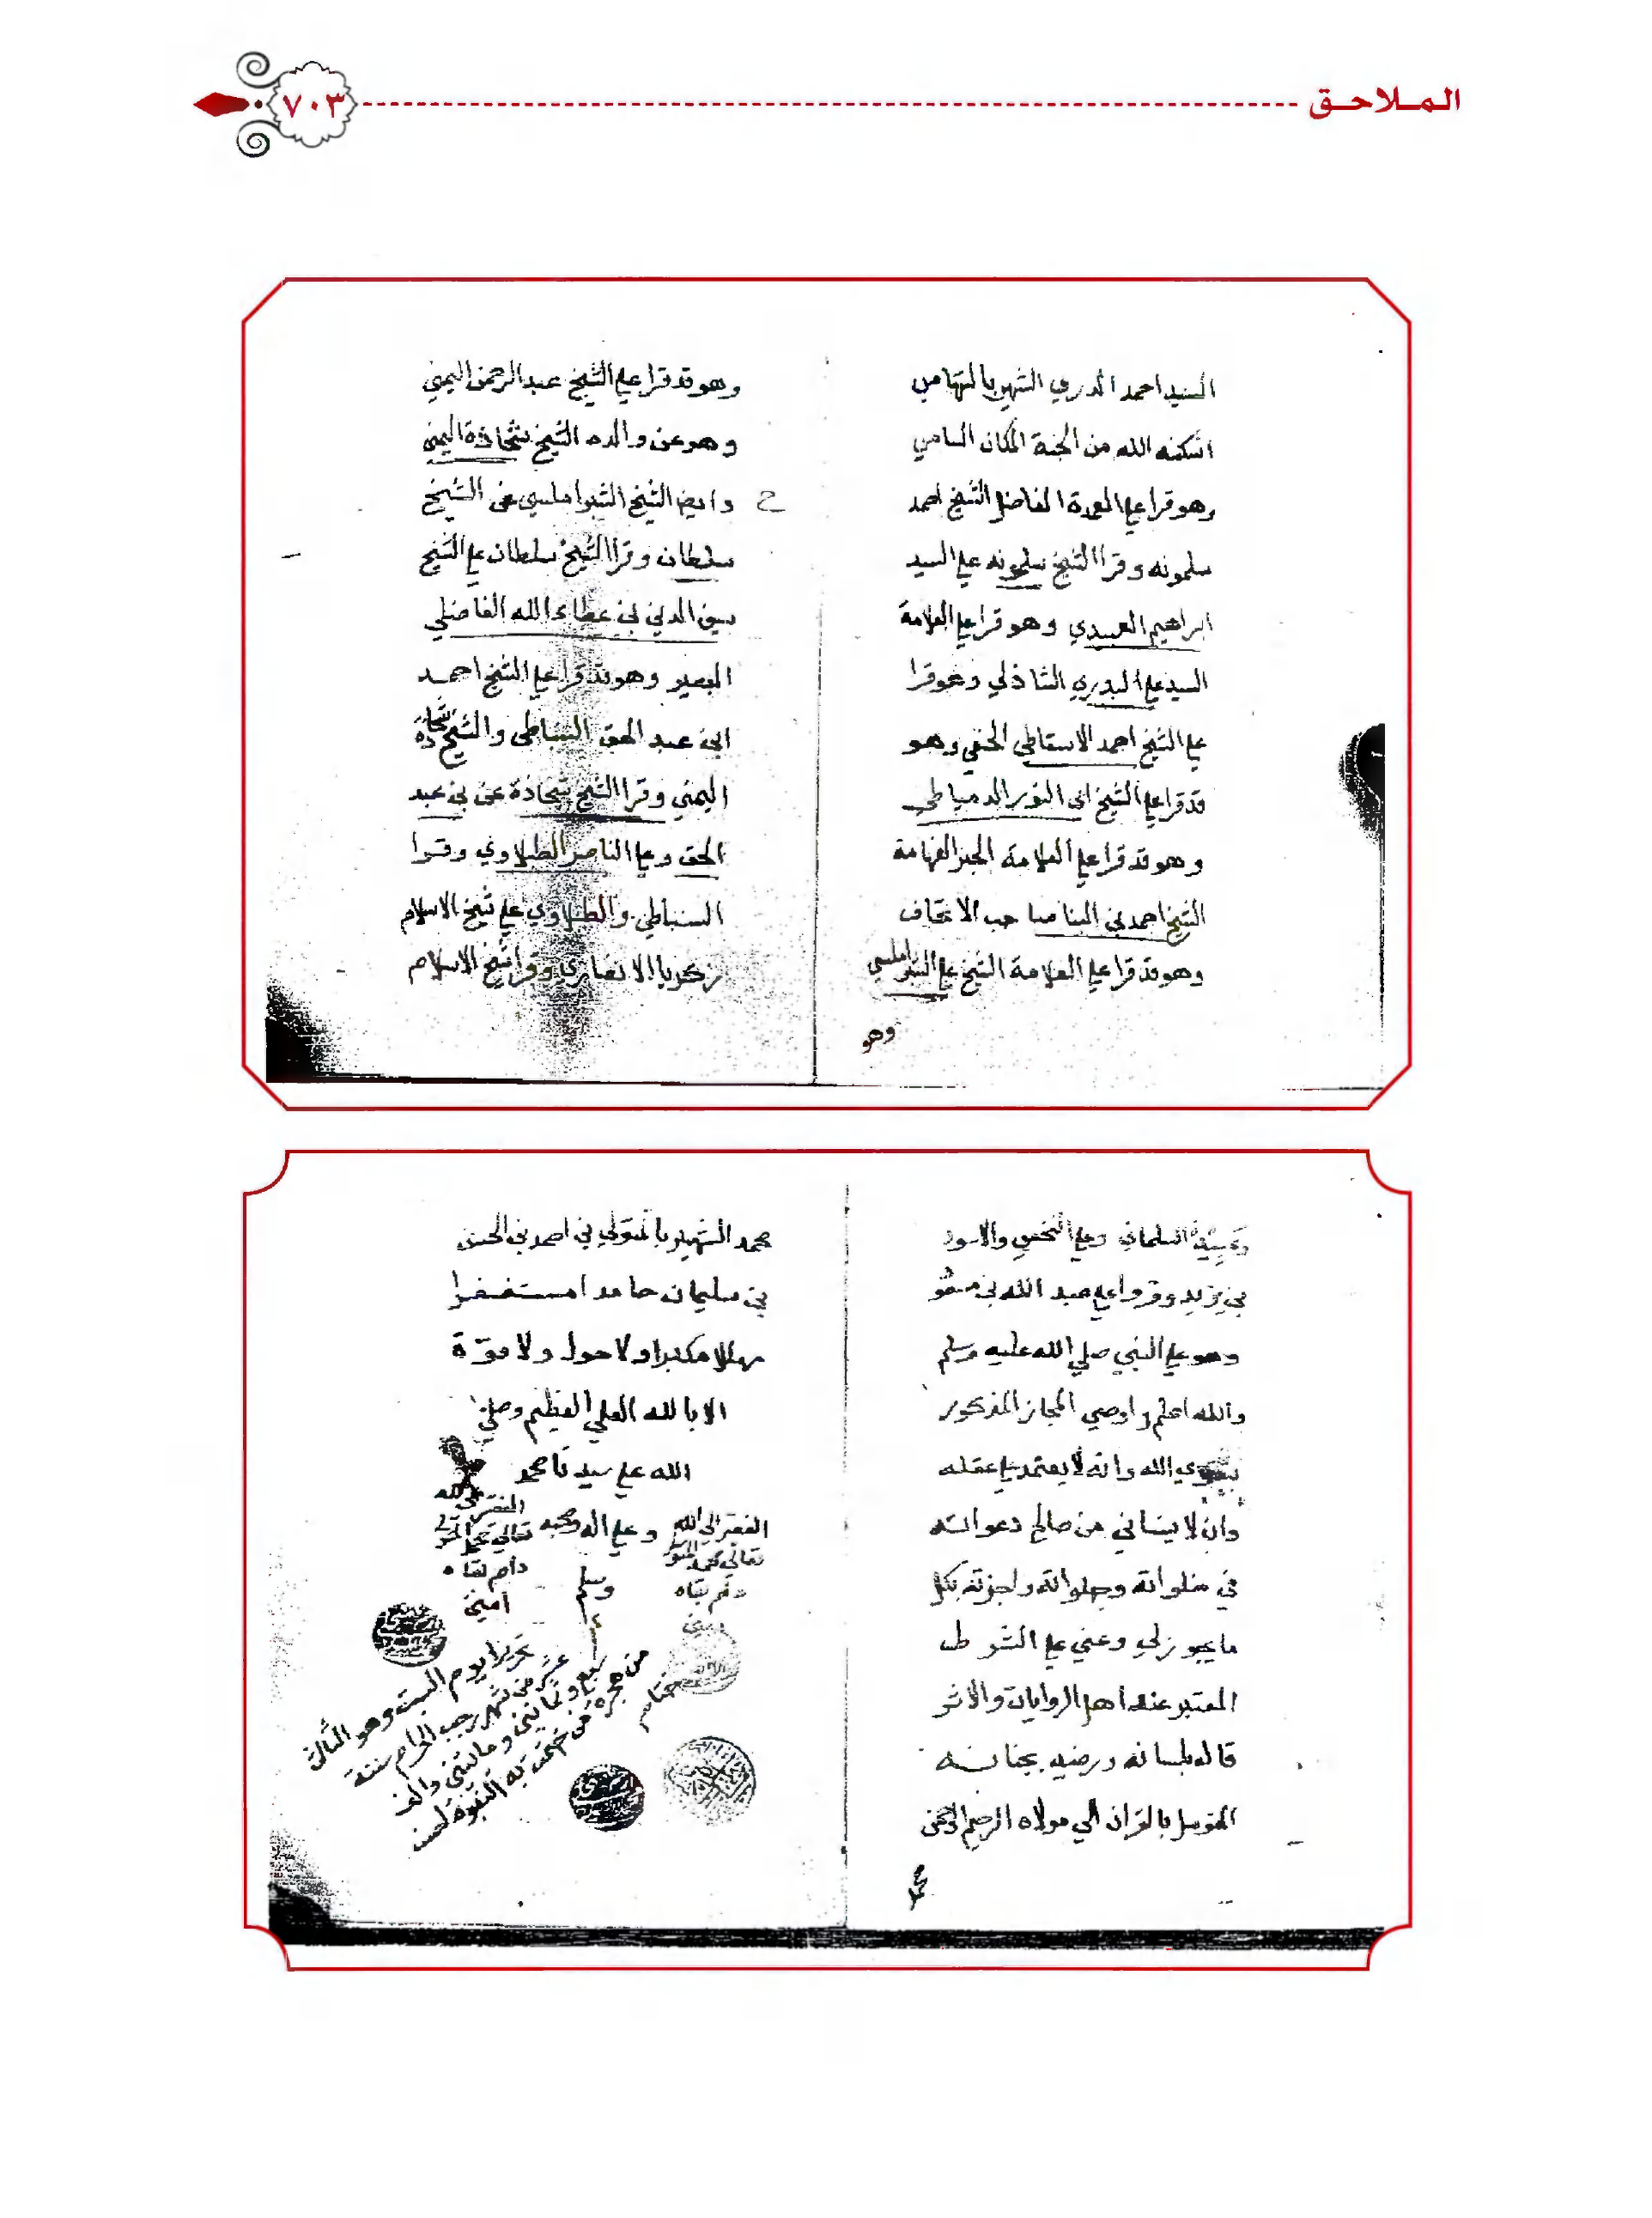 الملاحق
٧٠٣
السيد احمد الدري الشهير بالتهامي
اسكنه الله من الجنة المكان السامي
وهو قرا علي العمدة الفاضل الشيخ احمد
سلمونه وقرا الشيخ سلمونه علي السيد
ابراهيم العبيدي وهو قرا علي العلامة
السيد علي البدري الشاذلي وهو قرا
علي الشيخ احمد الاسقاطي الحنفي وهو
قد قرا علي الشيخ ابي النور الدمياطي
وهو قد قرا علي العلامة الحبر الفهامة
الشيخ احمد بن البنا صاحب الاتحاف
وهو قد قرا علي العلامة الشيخ علي الشبراملسي
وهو
وهو قد قرا علي الشيخ عبد الرحمن اليمني
وهو عن والده الشيخ شحاذة اليمني
ح وايضا الشيخ الشبراملسي عن الشيخ
سلطان وقرا الشيخ سلطان علي الشيخ
سيف الدين بن عطاء الله الفاضلي
البصير وهو قد قرا علي الشيخ احمد
ابن عبد الحق السنباطي والشيخ شحاذة
اليمني وقرا الشيخ شحاذة عن بن عبد
الحق وعلي الناصر الطبلاوي وقرا
السنباطي والطبلاوي علي شيخ الاسلام
زكريا الانصاري وقرا شيخ الاسلام
وعبيدة السلماني وعلي النخعي والاسود
بن يزيد وقروا علي عبد الله بن مسعود
وهو علي النبي صلي الله عليه وسلم
والله اعلم واوصي المجاز المذكور
بتقوي الله وانه لا يعتمد علي عقله
وان لا ينساني من صالح دعواته
في خلواته وجلواته واجزته بكل
ما يجوز لي وعني علي الشرط
المعتبر عند اهل الروايات والاثر
قاله بلسانه ورضيه بجنانه
المتوسل بالقران الي مولاه الرحيم الرحمن
محمد
محمد الشهير بالمتولي بن احمد بن الحسن
بن سليمان حامدا مستغفرا
مهللا مكبرا ولا حول ولا قوة
الا بالله العلي العظيم وصلي
الله علي سيدنا محمد
وعلي اله وصحبه
وسلم
الفقير الي الله
تعالي محمد المتولي
دام بقاه
امين
الفقير الي الله
تعالي محمد المتولي
دام بقاه
امين
تحريرا يوم السبت وهو الثالث
عشر من شهر رجب الحرام سنة
سبع وثمانين ومايتين والف
من هجرة من ختمت به النبوة
ختام